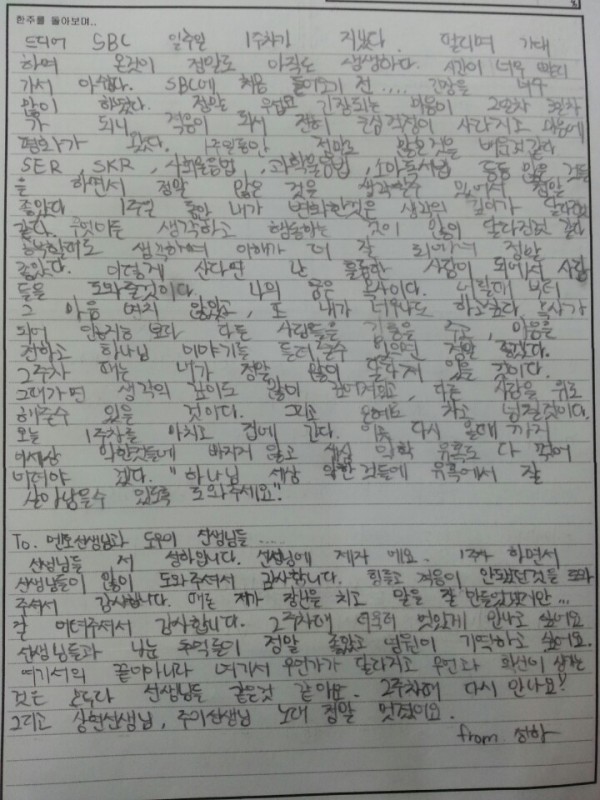 한주를 돌아보며..
드디어 SBC 일주일 1주차가 지났다. 떨리며 기대
하며 온것이 정말로 아직도 생생하다. 시간이 너무 빨리
가서 아쉽다. SBC에 처음 들어오기 전 .... 긴장을 너무
많이 하였다. 정말 무섭고 긴장되는 마음이 2일차 3일차
가 되니 적응이 되서 전혀 근심걱정이 사라지고 마음에
평화가 왔다. 1주일동안 정말로 많은것을 배운것같다
SER, SKR, 사회올림법, 과학올림법, 소마독서법 등등 많은 것들
을 하면서 정말 많은 것을 생각할수 있어서 정말
좋았다 1주일 동안 내가 변화한것은 생각의 깊이가 달라진것
같다. 무엇이든 생각하고 행동하는 것이 많이 달라진것 같다
생각하며 이해가 더 잘 되어서 정말
좋았다. 이렇게 산다면 난 훌륭한 사람이 되어서 사람
들을 도와줄것이다. 나의 꿈은 목사이다. 어릴때 부터
그 마음 변치 않았고, 또 내가 너무나도 하고싶다. 목사가
되어 다른 사람들을 기쁨을 주고, 마음을
전하고 하나님 이야기를 들려줄수 있으면 정말 좋겠다.
2주차 때는 내가 정말 많이 달라져 있을 것이다.
그때가면 생각의 깊이도 많이 깊어지고, 다른 사람을 위로
해줄수 있을 것이다. 그리고 차고 넘칠것이다.
오늘 1주차를 마치고 집에 간다. 이제 다시 올때 까지
이세상 악한것들에 빠지지 않고 세상 악한 유혹도 다 꺾어
버려야 겠다. "하나님 세상 악한 것들에 유혹에서 잘
살아남을수 있도록 도와주세요."
To. 멘토선생님과 도우미 선생님들 .....
선생님들 저 성하입니다. 선생님에 제자 에요. 1주차 하면서
선생님들이 많이 도와주셔서 감사합니다. 힘들고 적응이 안됐던것을 도와
주셔서 감사합니다. 때론 제가 장난을 치고 말을 잘 안들었겠지만...
잘 이겨주셔서 감사합니다. 2주차때 더욱더 멋있게 만나고 싶어요
선생님들과 나눈 추억들이 정말 좋았고 영원히 기억하고 싶어요.
여기서의 끝이아니라 여기서 무언가가 달라지고 무언가 확신이 생기는
것은 모두다 선생님들 같은것 같아요. 2주차에 다시 만나요!
그리고 상현선생님, 주미선생님 노래 정말 멋졌어요.
from 성하